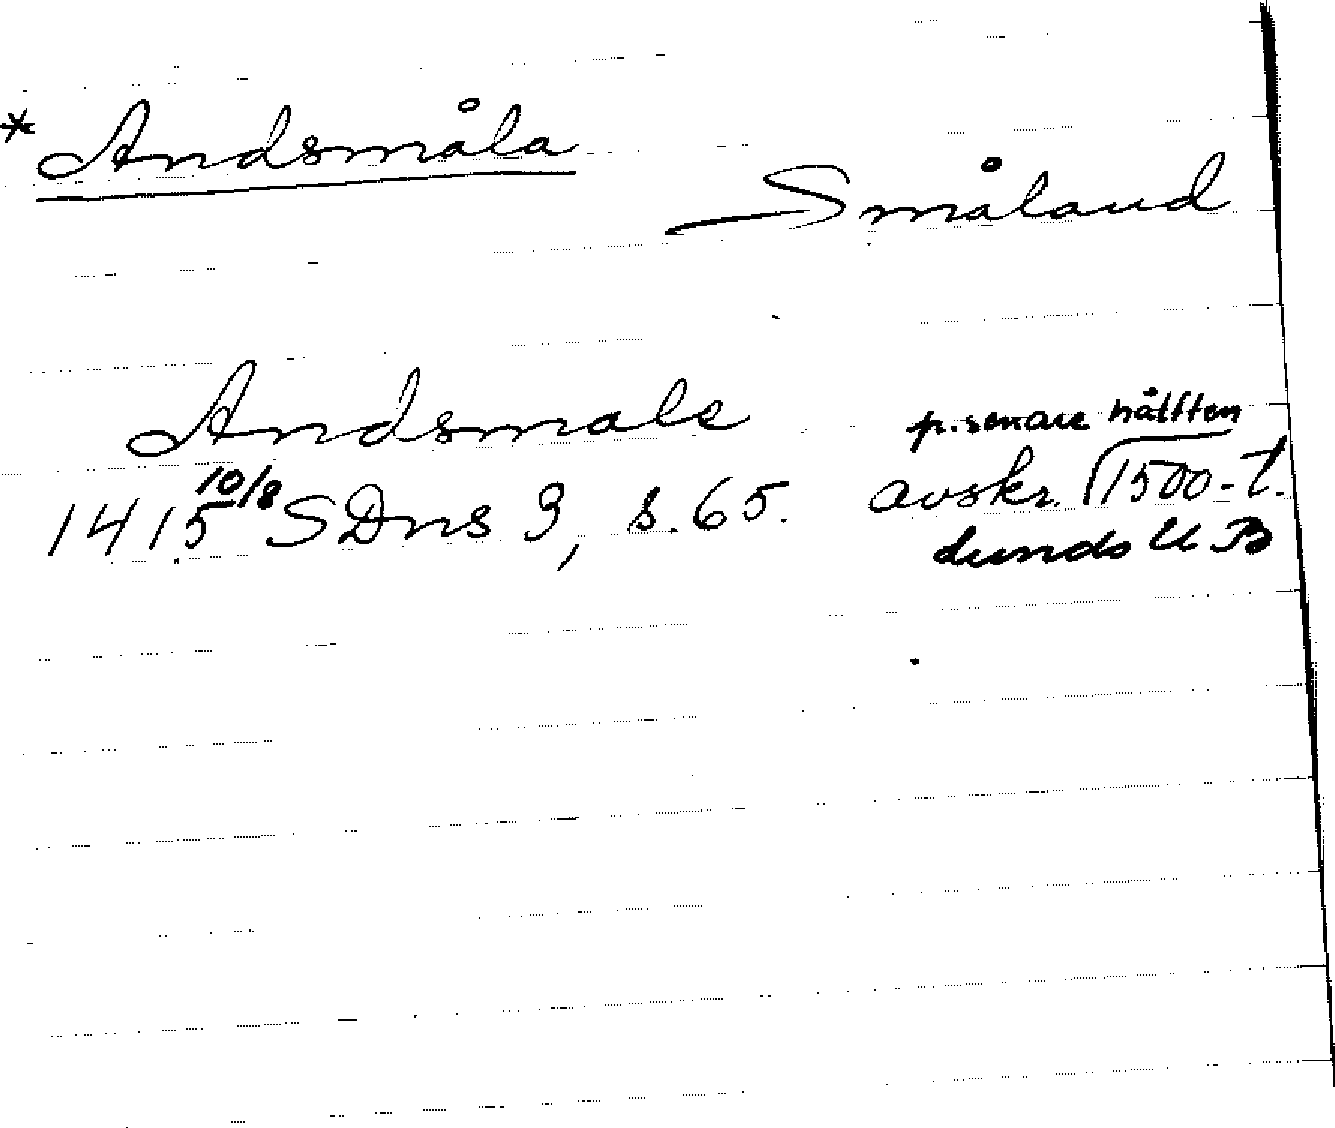 * Andsmåla
Småland
Andsmale
p. senare hälften
1415 10/8 SDns 3, s. 65. avskr. 1500-t.
Lunds UB